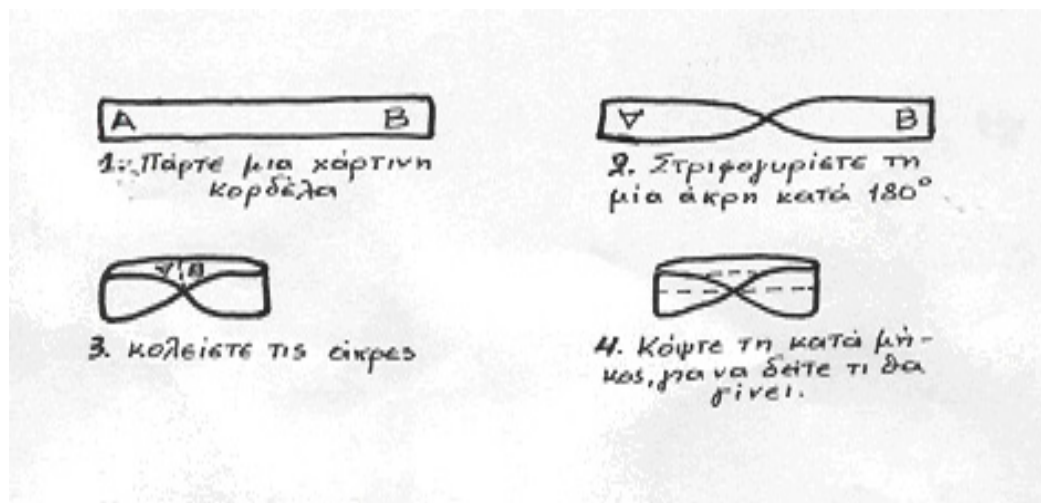 A B
1. Πάρτε μια χάρτινη
κορδέλα
∀ B
2. Στριφογυρίστε τη
μία άκρη κατά 180°
∀ B
3. κολείστε τις άκρες
4. Κόψτε τη κατά μή-
κος, για να δείτε τι θα
γίνει.